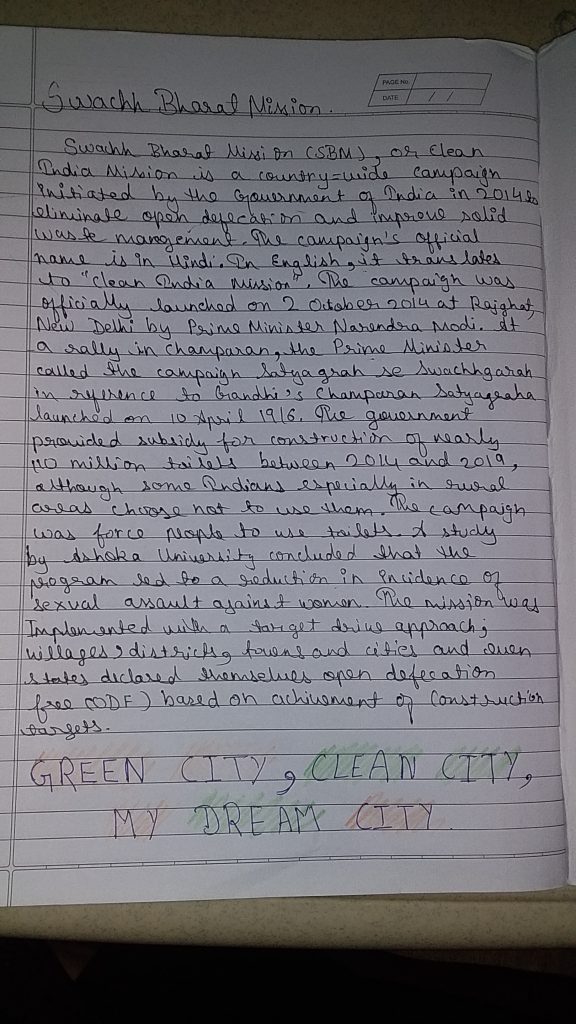 PAGE No.
DATE / /
Swachh Bharat Mission.
Swachh Bharat Missi on (SBM), or Clean
India Mission is a country-wide campaign
initiated by the Government of India in 2014 to
eliminate open defecation and improve solid
waste mangement. The campaign's official
name is in Hindi. In English, it trans lates
to "Clean India Mission". The campaign was
officially launched on 2 October 2014 at Rajghat,
New Delhi by Prime Minister Narendra Modi. At
a rally in Champaran, the Prime Minister
called the campaign Satyagrah se Swachhgarah
in reference to Gandhi's Champaran Satyagraha
launched on 10 April 1916. The government
provided subsidy for construction of nearly
110 million toilets between 2014 and 2019,
although some Indians especially in rural
areas choose not to use them. The campaign
was force people to use toilets. A study
by Ashoka University concluded that the
program led to a reduction in incidence of
sexual assault against women. The mission was
Implemented with a target drive approach;
villages, districts, towns and cities and even
states declared themselves open defecation
free (ODF) based on achivement of construction
targets.
GREEN CITY, CLEAN CITY,
MY DREAM CITY.